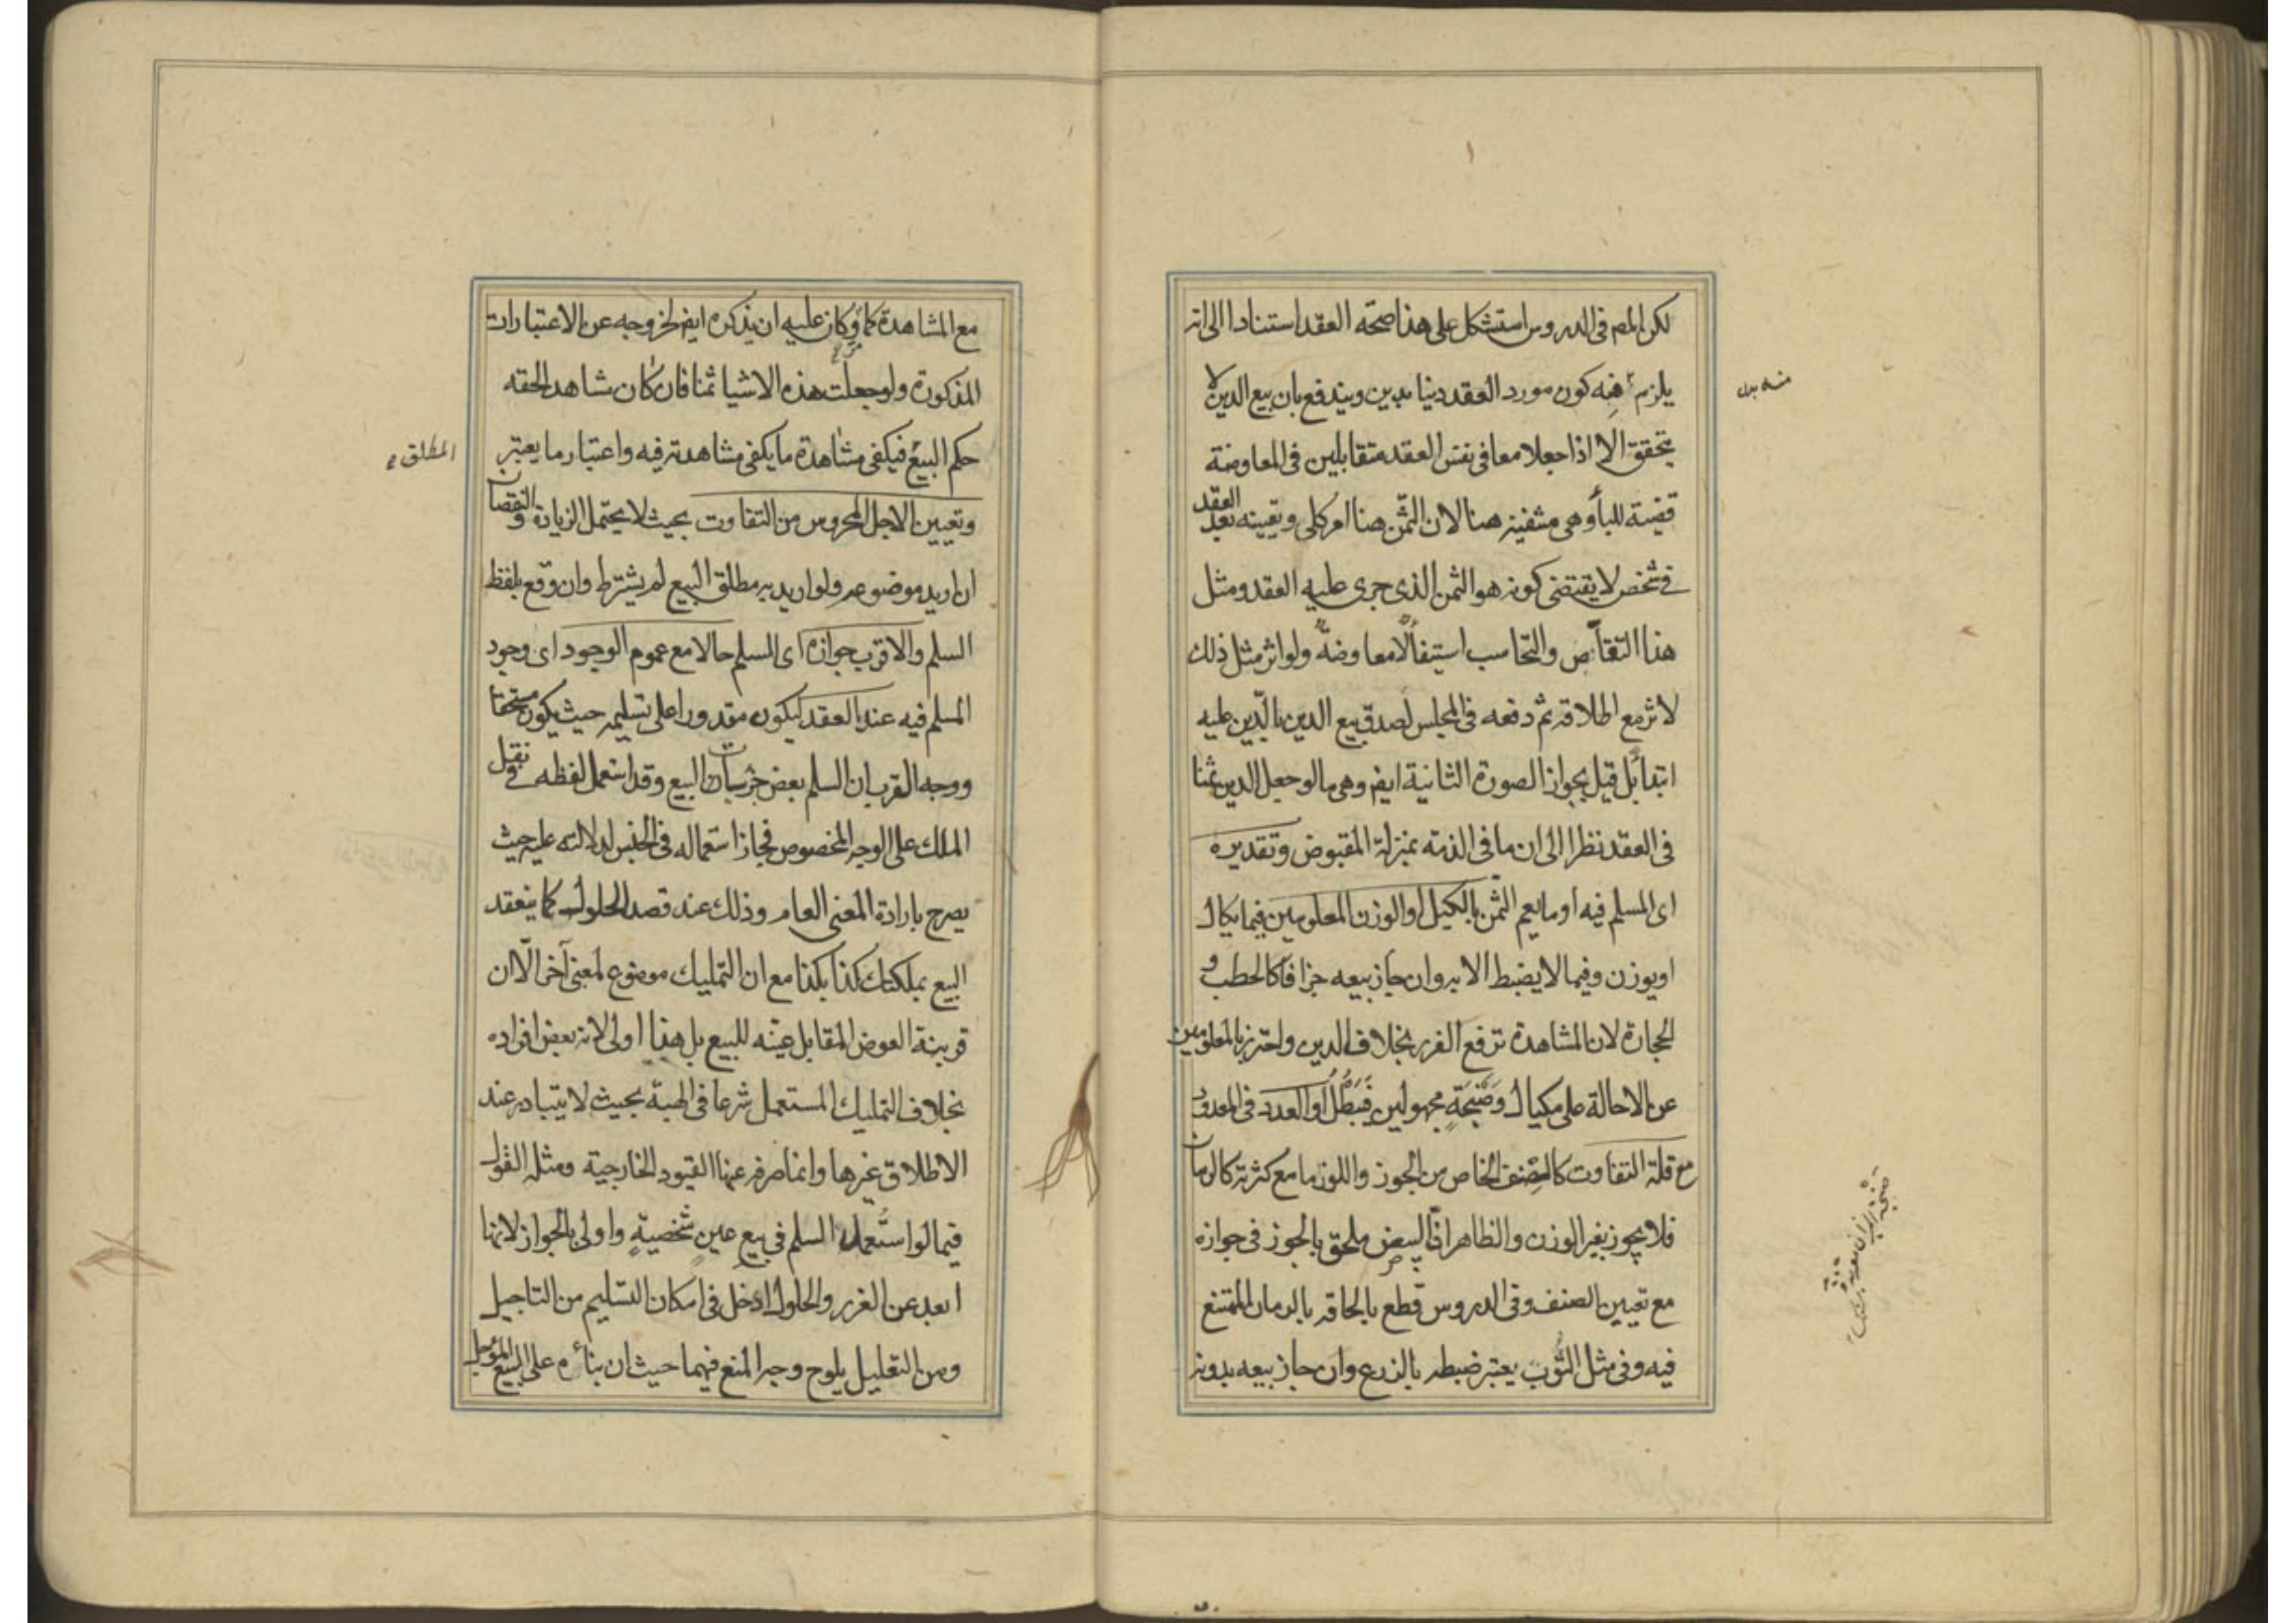 لكن المصر فى الدروس استشكل على هذا صحة العقد استنادا الى انه
يلزم منه كون مورد العقد دينا بدين ويندفع بان بيع الدين لا
يتحقق الا اذا جعلا معا فى نفس العقد متقابلين فى المعاوضة
قضية للبأ وهى منتفية هنا لان الثمن هنا امر كلى وتعيينه بعد العقد
فى شخص لا يقتضى كونه هو الثمن الذى جرى عليه العقد ومثل
هذا التقاص والتحاسب استيفاً لامعاوضة ولو اثر مثل ذلك
لاثر مع اطلاقه ثم دفعه فى المجلس لصدق بيع الدين بالدين عليه
ابتدأ بل قيل بجواز الصورة الثانية ايضر وهى مالو جعل الدين ثمنا
فى العقد نظرا الى ان ما فى الذمة بمنزلة المقبوض وتقديره
اى المسلم فيه او ما يعم الثمن بالكيل او الوزن المعلومين فيما يكال
او يوزن وفيما لا يضبط الا به وان جاز بيعه جزافا كالحطب و
الحجارة لان المشاهدة ترفع الغرر بخلاف الدين واحترز بالمعلومين
عن الاحالة على مكيال وصَنجَةٍ مجهولين فيَبطُلُ او العدد فى المعدود
مع قلة التفاوت كالصنف الخاص من الجوز واللوز ما مع كثرته كالرمان
فلا يجوز بغير الوزن والظاهر انّ البيض ملحق بالجوز فى جوازه
مع تعيين الصنف وفى الدروس قطع بالحاقه بالرمان الممتنع
فيه وفى مثل الثوب يعتبر ضبطه بالذرع وان جاز بيعه بدونه
منه بدل
صنجة الميزان معربة
مع المشاهدة كما مر وكان عليه ان يذكره ايضر لخروجه عن الاعتبارات
المذكورة ولو جعلت هذه الاشيا ثمنا فان كان شاهد الحقه
حكم البيع فيكفى مشاهدة ما يكفى مشاهدته فيه واعتبار ما يعتبر
المطلق
وتعيين الاجل المحروس من التفاوت بحيث لا يحتمل الزيادة والنقصان
ان اريد موضوعه ولو اريد به مطلق البيع لم يشترط وان وقع بلفظ
السلم والاقرب جوازه اى المسلم حالا مع عموم الوجود اى وجود
المسلم فيه عند العقد ليكون مقدورا على تسليمه حيث يكون مستحقا
ووجه القرب ان السلم بعض جزئيات البيع وقد استعمل لفظه فى نقل
الملك على الوجه المخصوص فجاز استعماله فى الجنس لدلالته عليه حيث
يصرح بارادة المعنى العام وذلك عند قصد الحلول كما ينعقد
البيع بملكتك كذا بكذا مع ان التمليك موضوع لمعنى آخر الّا ان
قرينة العوض المقابل عينه للبيع بل هذا اولى لانه بعض افراده
بخلاف التمليك المستعمل شرعا فى الهبة بحيث لا يتبادر عند
الاطلاق غيرها وانما صرفه عنها القيود الخارجية ومثله القول
فيما لو استُعمل السلم فى بيع عينٍ شخصيةٍ واولى بالجواز لانها
ابعد عن الغرر والحلول ادخل فى امكان التسليم من التاجيل
ومن التعليل يلوح وجه المنع فيهما حيث ان بناءه على البيع المؤجل